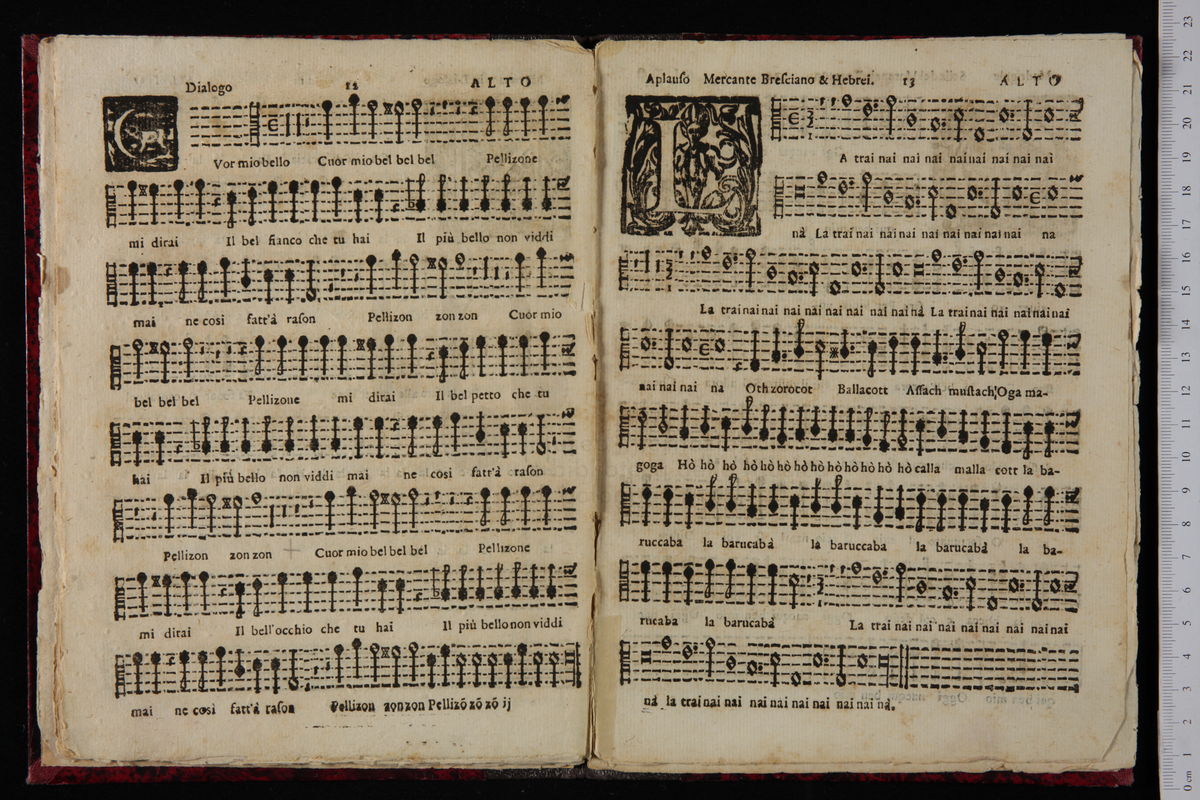 Dialogo 12 ALTO
C
Vor mio bello Cuor mio bel bel bel Pellizone
mi dirai Il bel fianco che tu hai Il più bello non viddi
mai ne così fatt'à rason Pellizon zon zon Cuor mio
bel bel bel Pellizone mi dirai Il bel petto che tu
hai Il più bello non viddi mai ne così fatt'à rason
Pellizon zon zon Cuor mio bel bel bel Pellizone
mi dirai Il bell'occhio che tu hai Il più bello non viddi
mai ne così fatt'à rason Pellizon zon zon Pellizõ zõ zõ ij
Aplauso Mercante Bresciano & Hebrei. 13 ALTO
L
A trai nai nai nai nai nai nai nai nai
nà La trai nai nai nai nai nai nai nai nai na
La trai nai nai nai nai nai nai nai nai nà La trai nai nai nai nai nai
nai nai nai na Oth zorocot Ballacott Assach mustach! Oga ma-
goga Hò hò hò hò hò hò hò hò hò hò hò hò hò calla malla cott la ba-
ruccaba la barucabà la baruccaba la barucabà la ba-
rucaba la barucabà La trai nai nai nai nai nai nai nai nai
nà la trai nai nai nai nai nai nai nai nai nà.
23
22
21
20
19
18
17
16
15
14
13
12
11
10
9
8
7
6
5
4
3
2
1
0 cm